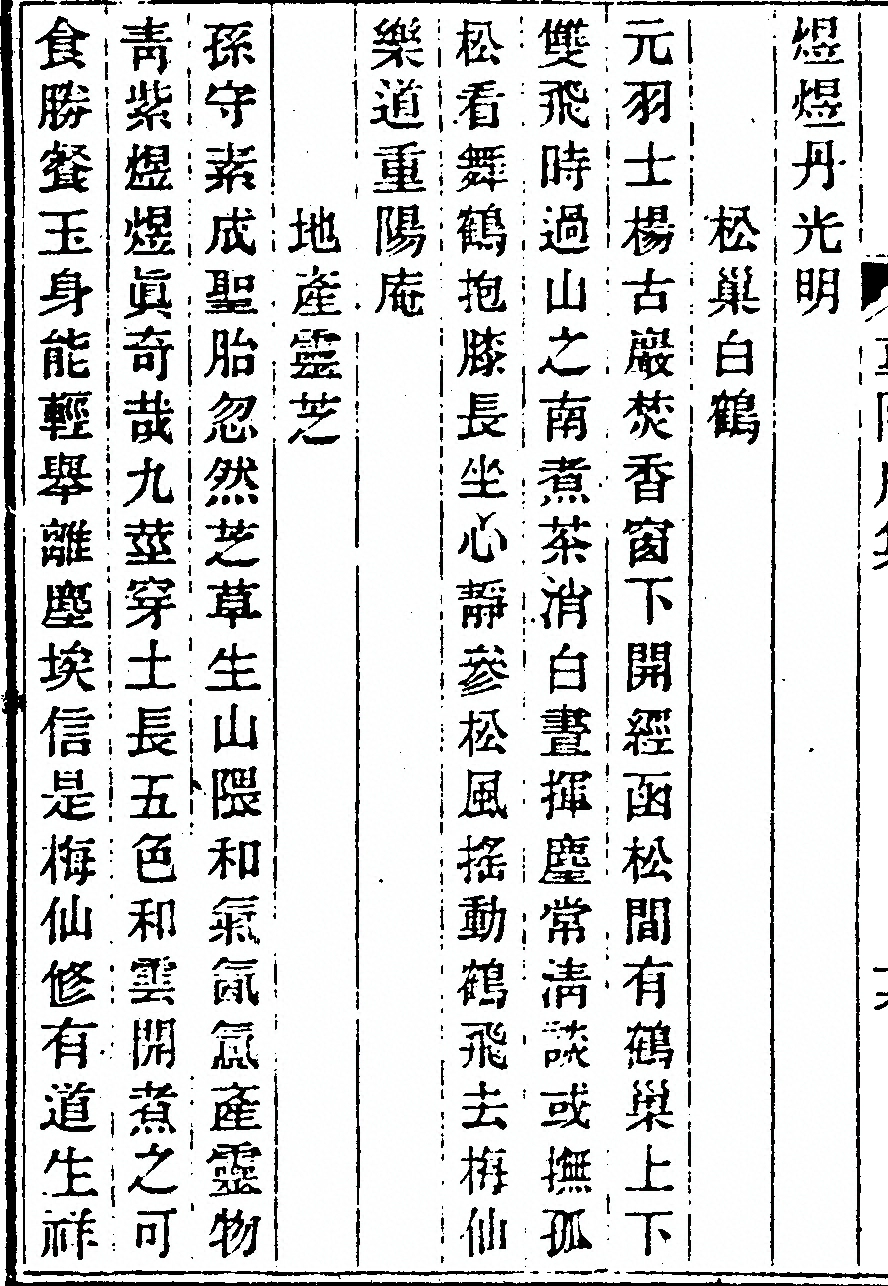 煜煜丹光明
松巢白鶴
元羽士楊古巖焚香窗下開經函松間有鶴巢上下
雙飛時過山之南煮茶消白晝揮麈常清談或撫孤
松看舞鶴抱膝長坐心靜參松風搖動鶴飛去梅仙
樂道重陽庵
地產靈芝
孫守素成聖胎忽然芝草生山隈和氣氤氳產靈物
青紫煜煜眞奇哉九莖穿土長五色和雲開煮之可
食勝餐玉身能輕舉離塵埃信是梅仙修有道生祥